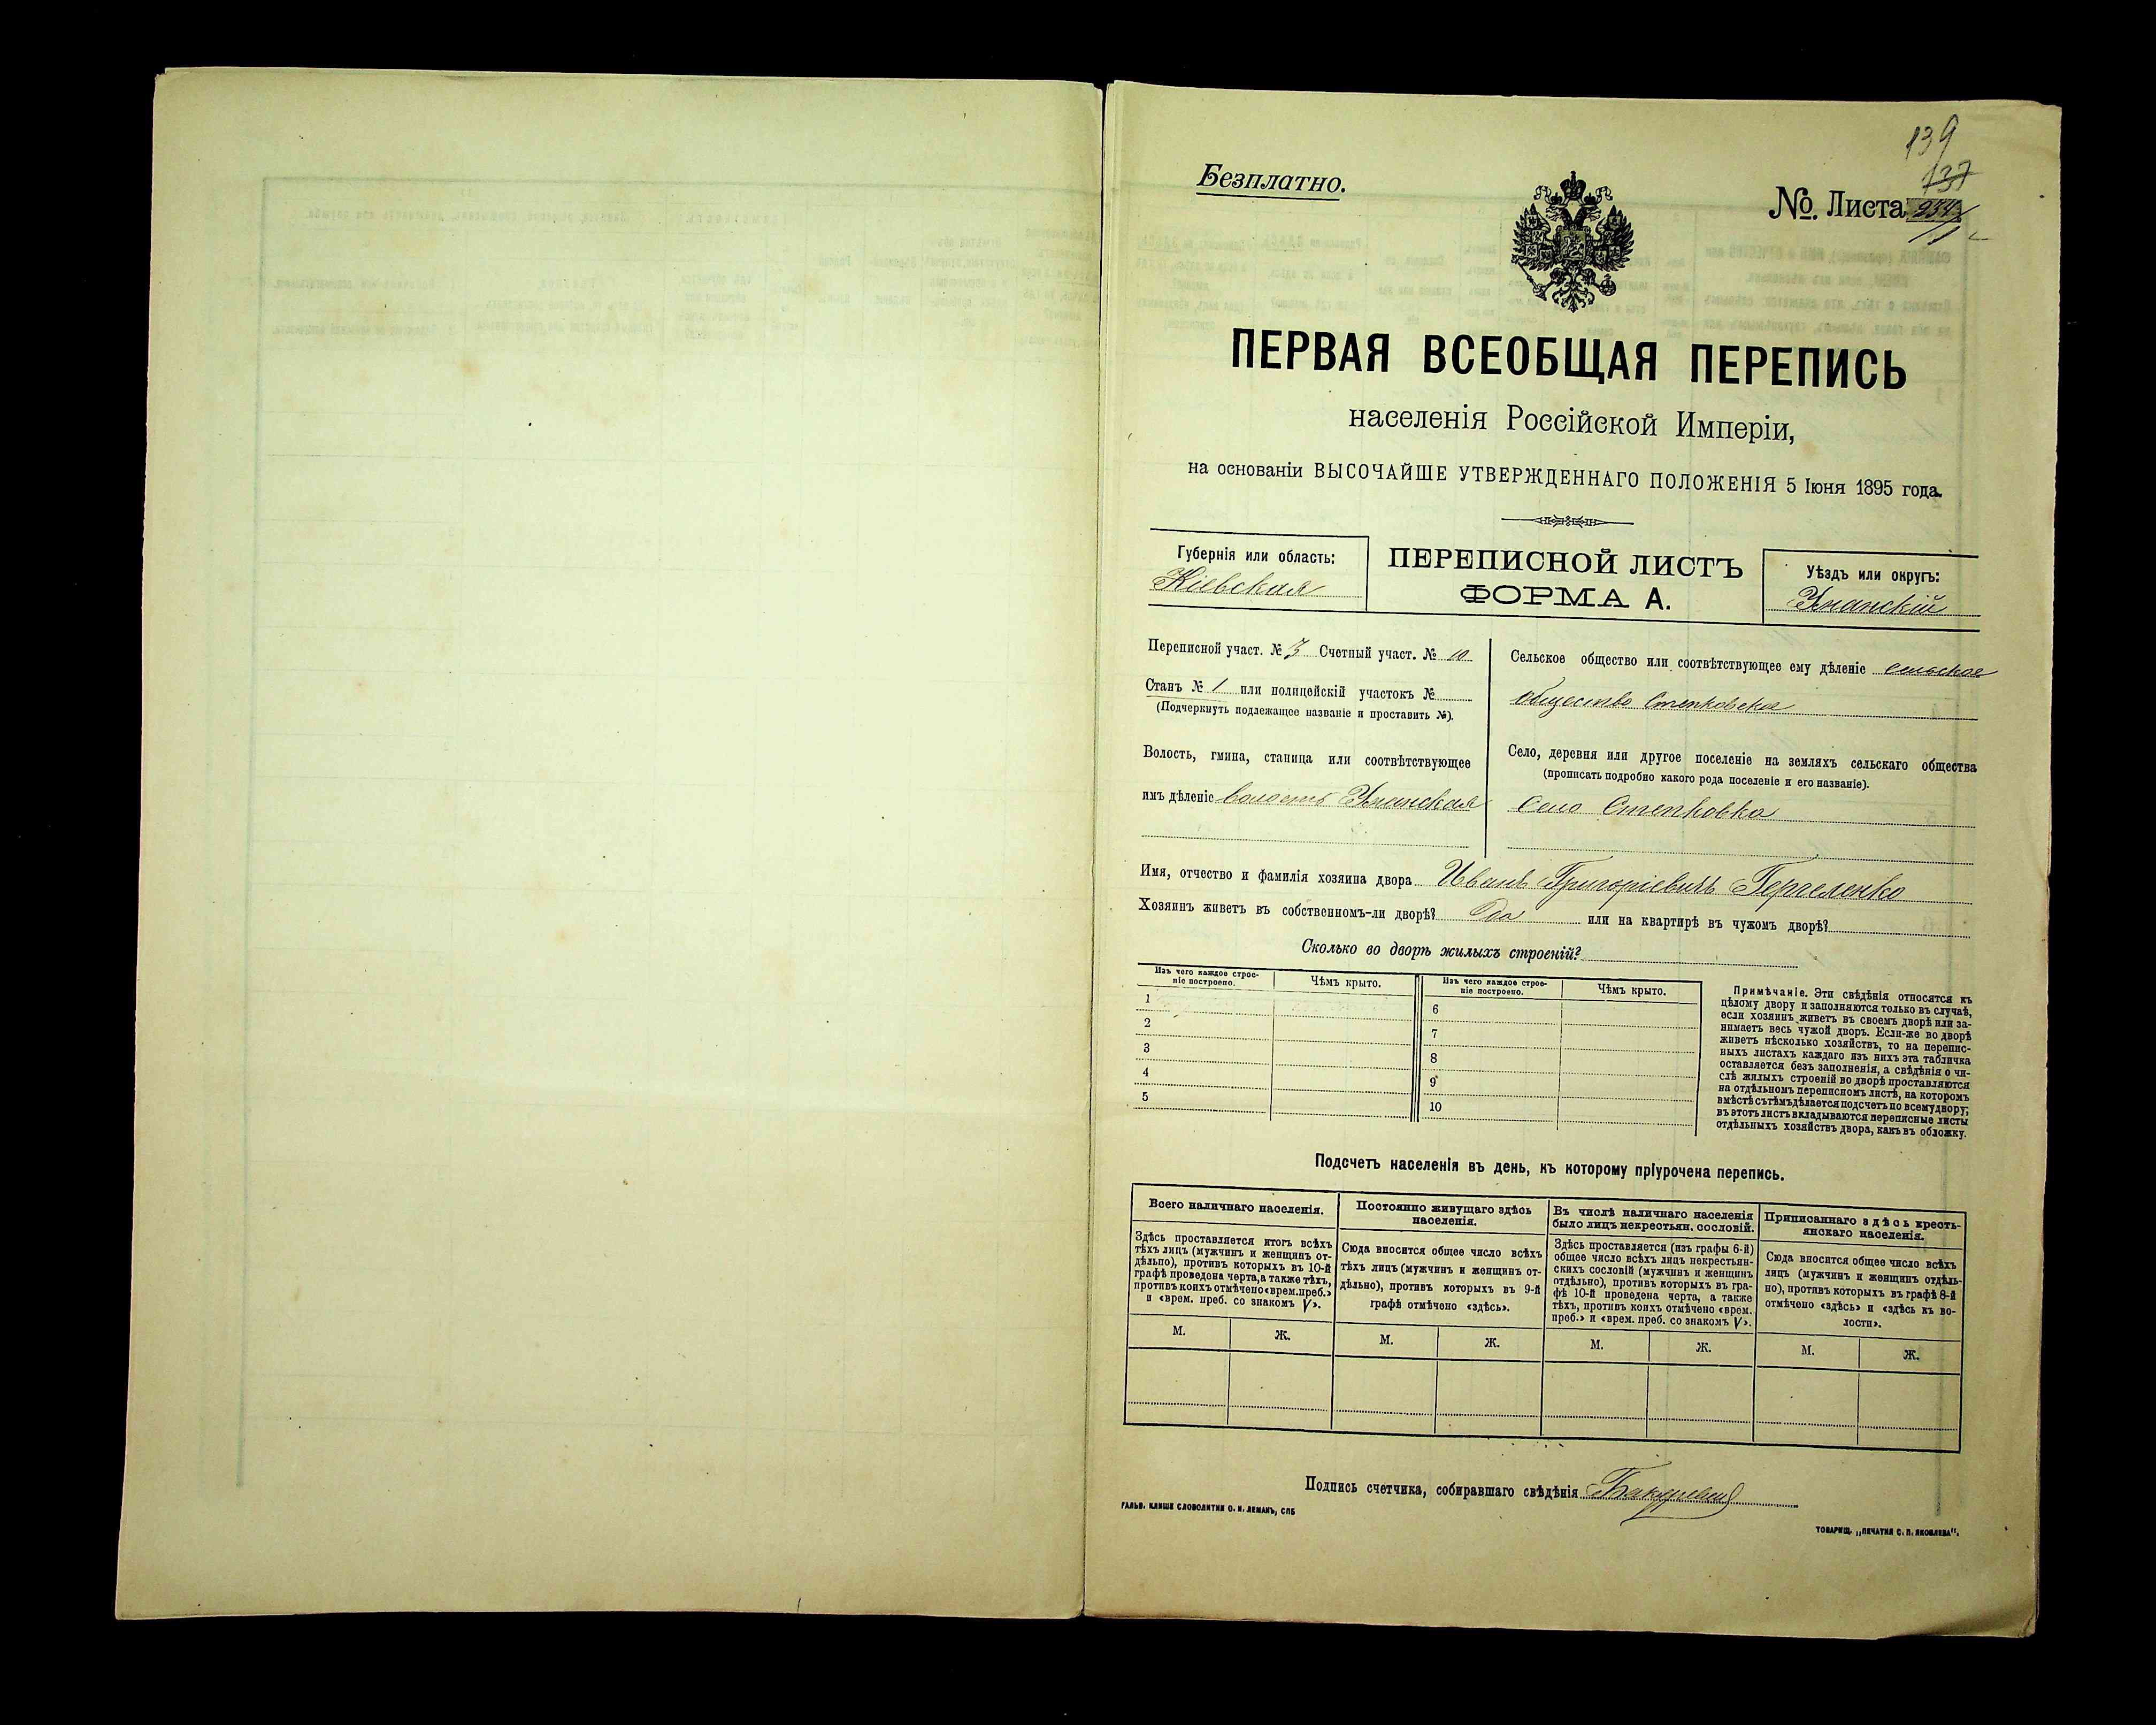 139
137
Безплатно.
№ Листа 234/1
ПЕРВАЯ ВСЕОБЩАЯ ПЕРЕПИСЬ
населенія Россійской Имперіи,
на основаніи ВЫСОЧАЙШЕ УТВЕРЖДЕННАГО ПОЛОЖЕНІЯ 5 Іюня 1895 года.
Губернія или область:
Кіевская
ПЕРЕПИСНОЙ ЛИСТЪ
ФОРМА А.
Уѣздъ или округъ:
Уманскій
Переписной участ. № 3 Счетный участ. № 10
Станъ № 1 или полицейскій участокъ №
(Подчеркнуть подлежащее названіе и проставить №).
Волость, гмина, станица или соотвѣтствующее
имъ дѣленіе волость Уманская
Сельское общество или соотвѣтствующее ему дѣленіе сельское
общество Степковское
Село, деревня или другое поселеніе на земляхъ сельскаго общества
(прописать подробно какого рода поселеніе и его названіе).
Село Степковка
Имя, отчество и фамилія хозяина двора Иванъ Григоріевичъ
Хозяинъ живетъ въ собственномъ-ли дворѣ? Да или на квартирѣ въ чужомъ дворѣ?
Сколько во дворѣ жилыхъ строеній?
Изъ чего каждое строе-
ніе построено.
Чѣмъ крыто.
1
2
3
4
5
Изъ чего каждое строе-
ніе построено.
Чѣмъ крыто.
6
7
8
9
10
Примѣчаніе. Эти свѣдѣнія относятся къ
цѣлому двору и заполняются только въ случаѣ,
если хозяинъ живетъ въ своемъ дворѣ или за-
нимаетъ весь чужой дворъ. Если-же во дворѣ
живетъ нѣсколько хозяйствъ, то на перепис-
ныхъ листахъ каждаго изъ нихъ эта табличка
оставляется безъ заполненія, а свѣдѣнія о чи-
слѣ жилыхъ строеній во дворѣ проставляются
на отдѣльномъ переписномъ листѣ, на которомъ
вмѣстѣ съ тѣмъ дѣлается подсчетъ по всему двору;
въ этотъ листъ вкладываются переписные листы
отдѣльныхъ хозяйствъ двора, какъ въ обложку.
Подсчетъ населенія въ день, къ которому пріурочена перепись.
Всего наличнаго населенія.
Здѣсь проставляется итогъ всѣхъ
тѣхъ лицъ (мужчинъ и женщинъ от-
дѣльно), противъ которыхъ въ 10-й
графѣ проведена черта, а также тѣхъ,
противъ коихъ отмѣчено «врем. преб.»
и «врем. преб. со знакомъ V».
М. Ж.
Постоянно живущаго здѣсь
населенія.
Сюда вносится общее число всѣхъ
тѣхъ лицъ (мужчинъ и женщинъ от-
дѣльно), противъ которыхъ въ 9-й
графѣ отмѣчено «здѣсь».
М. Ж.
Въ числѣ наличнаго населенія
было лицъ некрестьян. сословій.
Здѣсь проставляется (изъ графы 6-й)
общее число всѣхъ лицъ некрестьян-
скихъ сословій (мужчинъ и женщинъ
отдѣльно), противъ которыхъ въ гра-
фѣ 10-й проведена черта, а также
тѣхъ, противъ коихъ отмѣчено «врем.
преб.» и «врем. преб. со знакомъ V».
М. Ж.
Приписаннаго здѣсь кресть-
янскаго населенія.
Сюда вносится общее число всѣхъ
лицъ (мужчинъ и женщинъ отдѣль-
но), противъ которыхъ въ графѣ 8-й
отмѣчено «здѣсь» и «здѣсь къ во-
лости».
М. Ж.
Подпись счетчика, собиравшаго свѣдѣнія
ГАЛЬВ. КЛИШЕ СЛОВОЛИТНИ О. И. ЛЕМАНЪ, СПБ
ТОВАРИЩ. „ПЕЧАТНЯ С. П. ЯКОВЛЕВА".